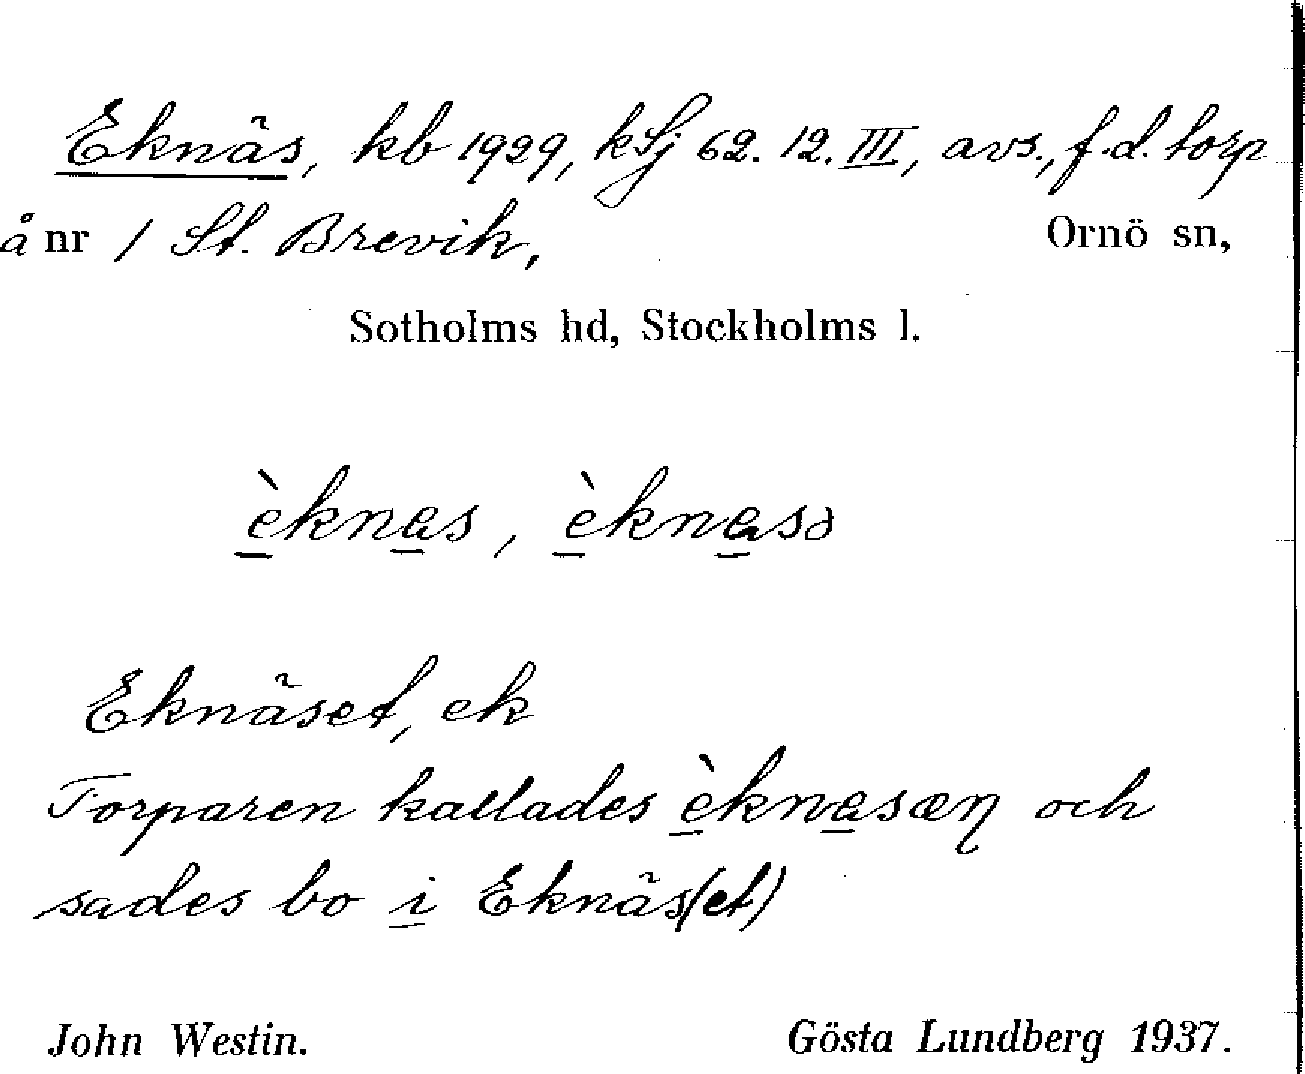 Eknäs, kb 1929, kSj 62. 12. III, avs., f.d. torp
å nr 1 St. Brevik, Ornö sn,
Sotholms hd, Stockholms l.
èknas, èknasə
Eknäset, ek
Torparen kallades èknasæn och
sades bo i Eknäs(et)
John Westin. Gösta Lundberg 1937.